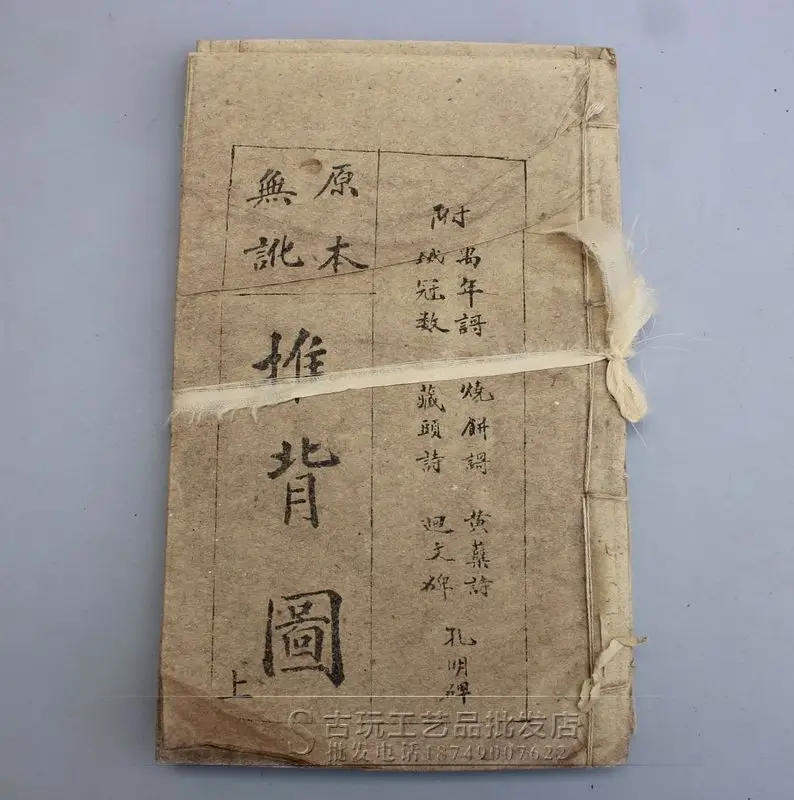 附
禺年謌
冠数
燒餅謌
藏頭詩
黄蘗詩
迴文碑
孔明碑
原本
無訛
推背圖
上
古玩工艺品批发店
批发电话18749007622